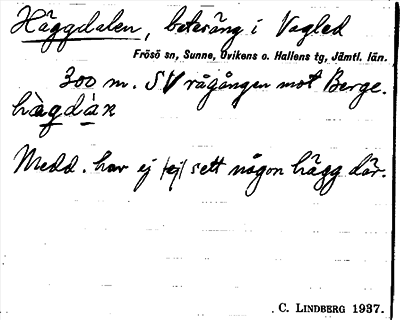 Häggdalen, beteräng i Vagled
Frösö sn, Sunne, Ovikens o. Hallens tg, Jämtl. län.
300 m. SV rågången mot Berge.
hàgdàn
Medd. har ej |ej| sett någon hägg där.
C. LINDBERG 1937.